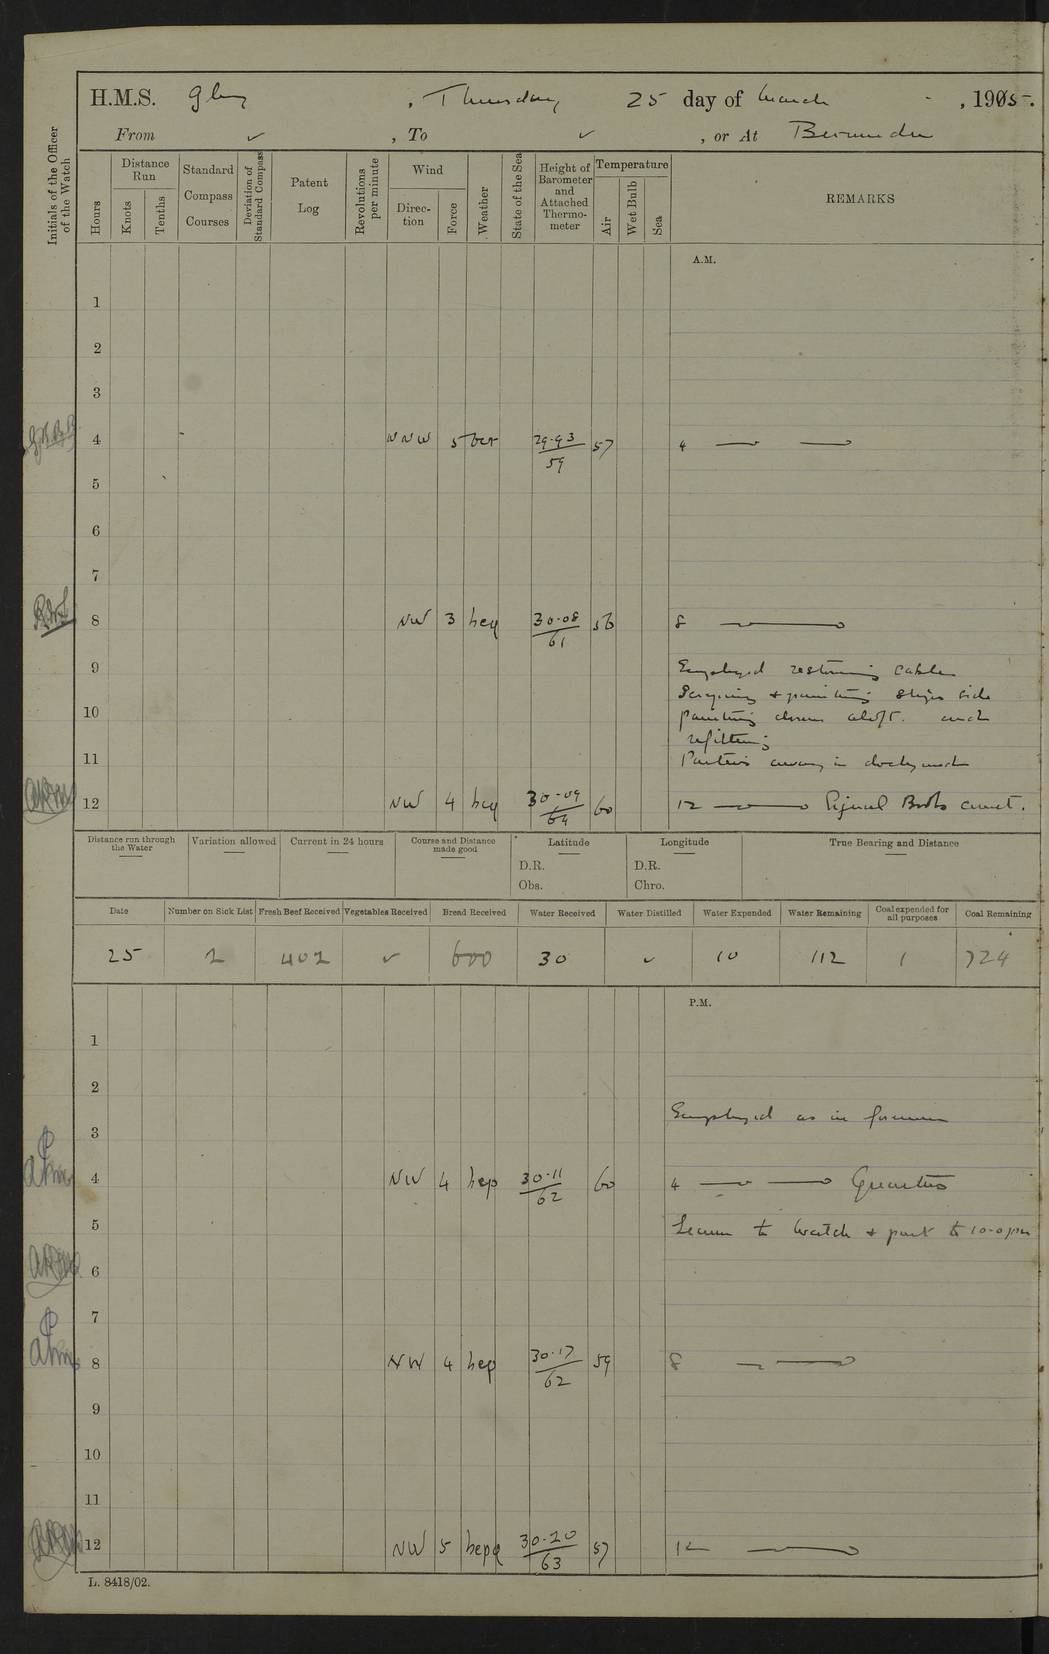 H.M.S. , Thursday 25 day of March , 1905.
From ✓ , To ✓ , or At Bermuda
Initials of the Officer of the Watch
Hours
Distance Run
Knots
Tenths
Standard Compass Courses
Deviation of Standard Compass
Patent Log
Revolutions per minute
Wind
Direction
Force
Weather
State of the Sea
Height of Barometer and Attached Thermometer
Temperature
Air
Wet Bulb
Sea
REMARKS
A.M.
1
2
3
4 NNW 5 29.93 59 57 4
5
6
7
8 NW 3 bcq 30.08 61 56 8
9 Employed restowing cable
Scraping & painting ships side
10 painting down aloft. and
refitting
11 Parties away in dockyard
12 NW 4 bcq 30.09 64 60 12 Signal Books correct.
Distance run through the Water
Variation allowed
Current in 24 hours
Course and Distance made good
Latitude
D.R.
Obs.
Longitude
D.R.
Chro.
True Bearing and Distance
Date Number on Sick List Fresh Beef Received Vegetables Received Bread Received Water Received Water Distilled Water Expended Water Remaining Coal expended for all purposes Coal Remaining
25 2 402 ✓ 600 30 ✓ 10 112 1 724
P.M.
1
2
Employed as in forenoon
3
4 NW 4 bcp 30.11 62 60 4 Quarters
5 Leave to watch & part to 10.0 pm
6
7
8 NW 4 bcp 30.17 62 59 8
9
10
11
12 NW 5 bcpq 30.20 63 57 12
L. 8418/02.